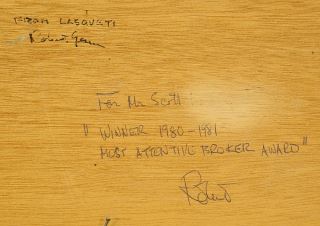 FROM LASQUETI
Robert
For Mr Scott
" WINNER 1980-1981
MOST ATTENTIVE BROKER AWARD "
Robert